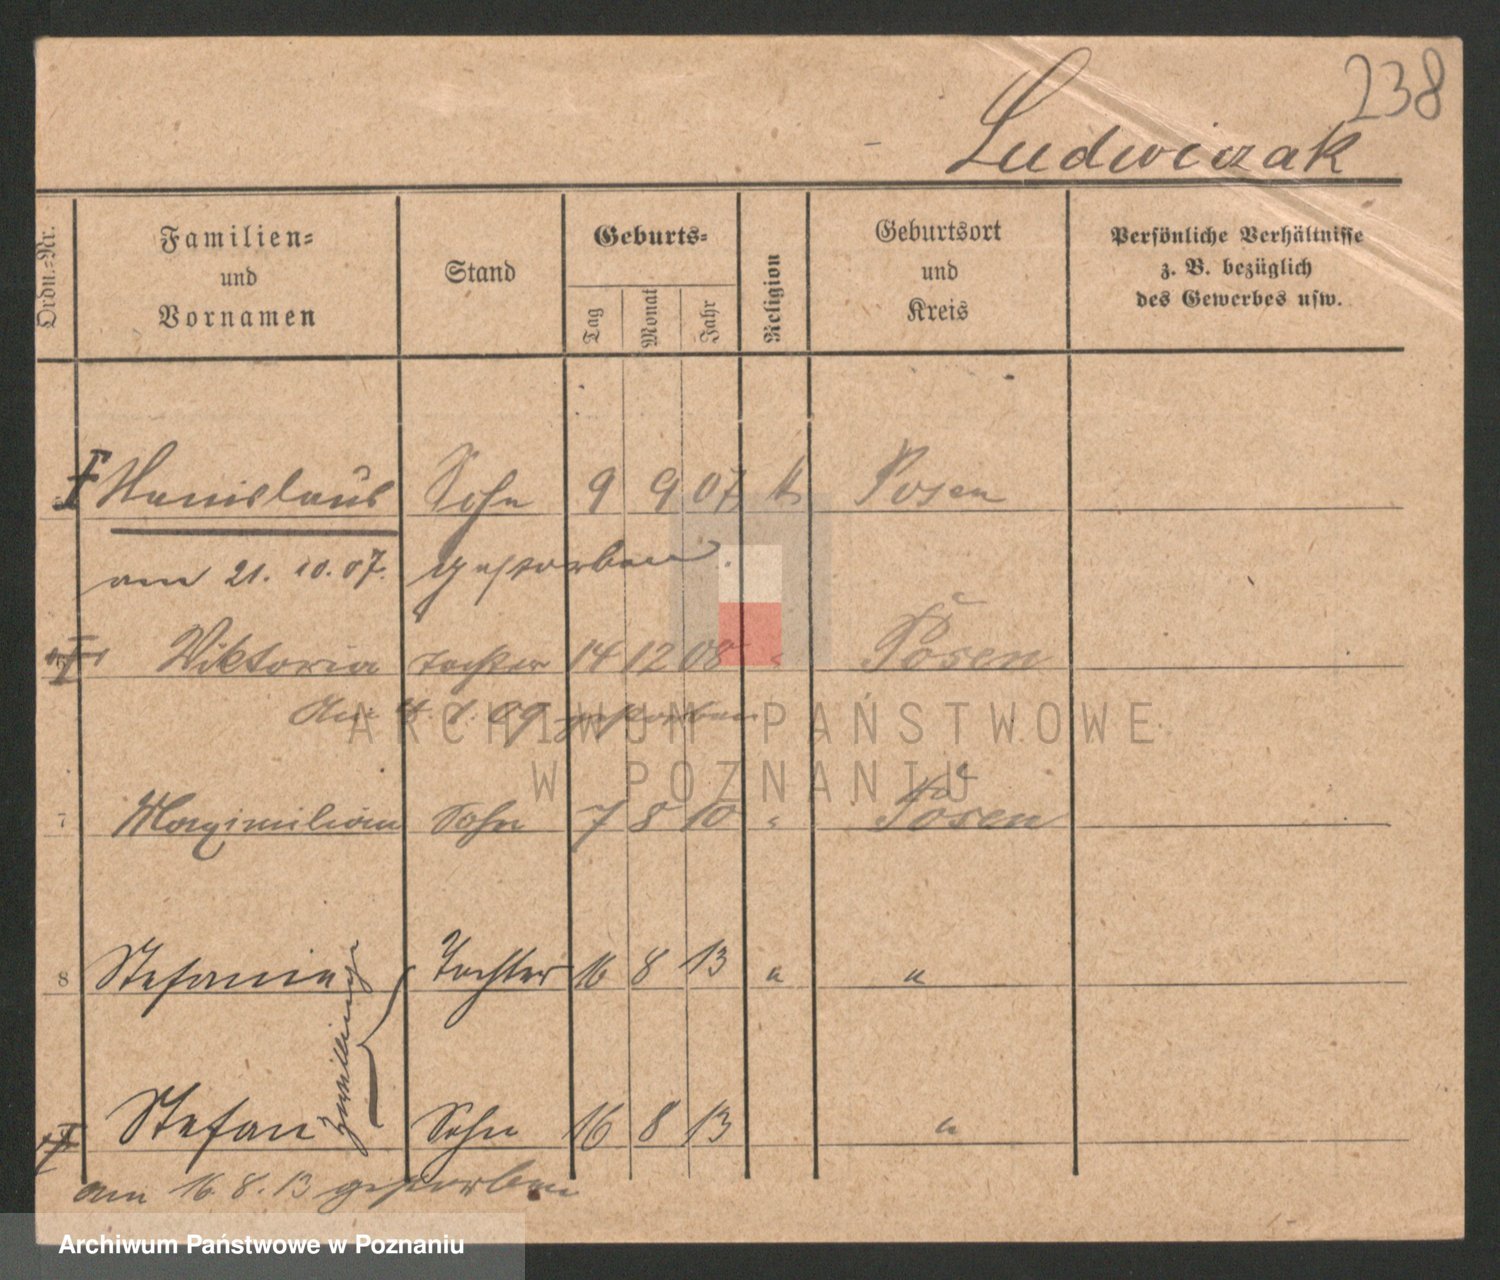 238
Ludwiczak
Ordn.=Nr.
Familien=
und
Vornamen
Stand
Geburts=
Tag
Monat
Jahr
Religion
Geburtsort
und
Kreis
Persönliche Verhältnisse
z. B. bezüglich
des Gewerbes usw.
Sohn 9 9 07 k Posen
am 21. 10. 07. gestorben.
Viktoria Tochter 14 12 08 " Posen
Am 1. 09 gestorben
ARCHIWUM PAŃSTWOWE
W POZNANIU
7 Maximilian Sohn 7 8 10 " Posen
8 Stefanie Tochter 16 8 13 " "
Zwillinge
Stefan Sohn 16 8 13 "
am 16. 8. 13 gestorben
Archiwum Państwowe w Poznaniu